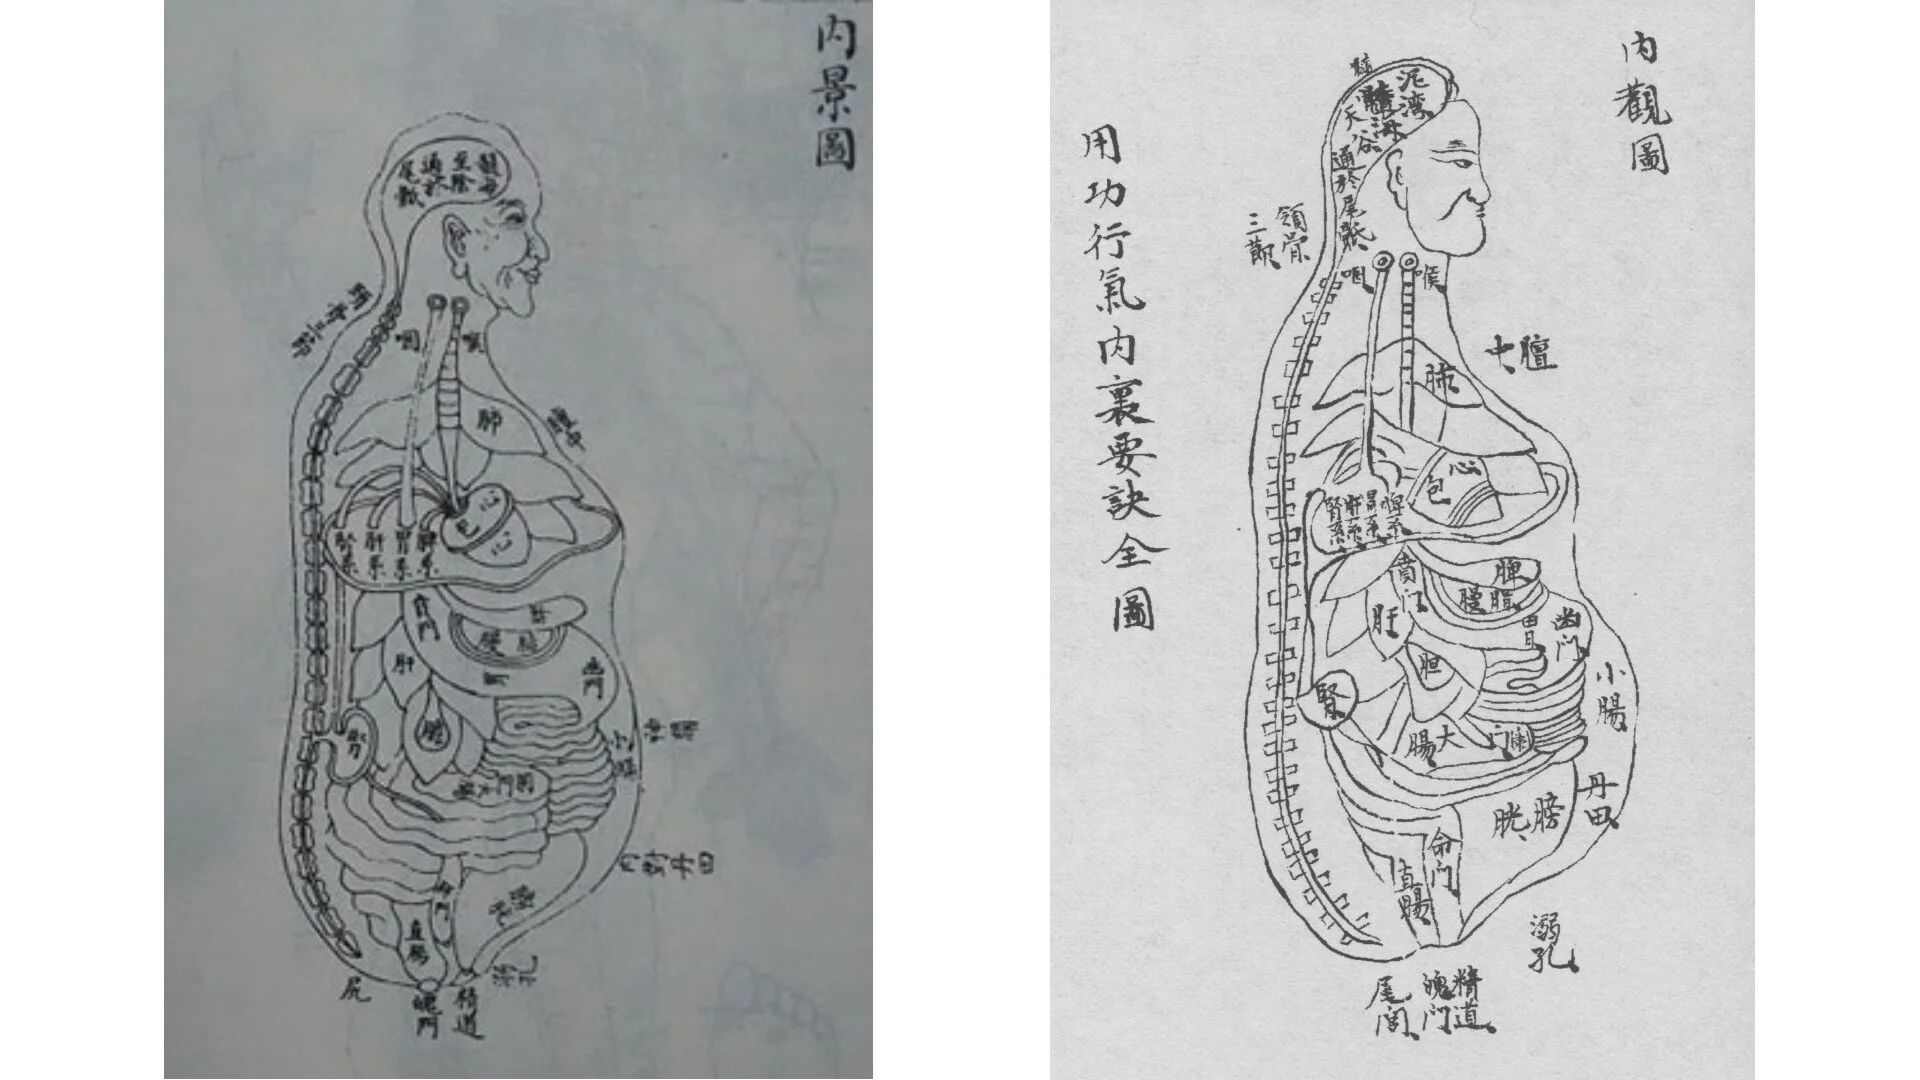 内景圖
髓海
至陰
通於
尾骶
咽
喉
肺
心
包
心
腎系
肝系
胃系
脾系
賁門
肝
胃
幽門
膽
腎
小腸
直腸
尻
魄門
精道
溺孔
內觀圖
用功行氣內裏要訣全圖
髓
泥湾
髓海
天谷
通於尾骶
領骨
三節
咽
喉
膻
中
肺
心
包
腎系
肝系
胃系
脾系
賁门
脾
肝
胃
幽门
胆
小腸
腎
大
腸
丹田
膀
胱
命门
直腸
溺孔
尾閭
魄门
精道